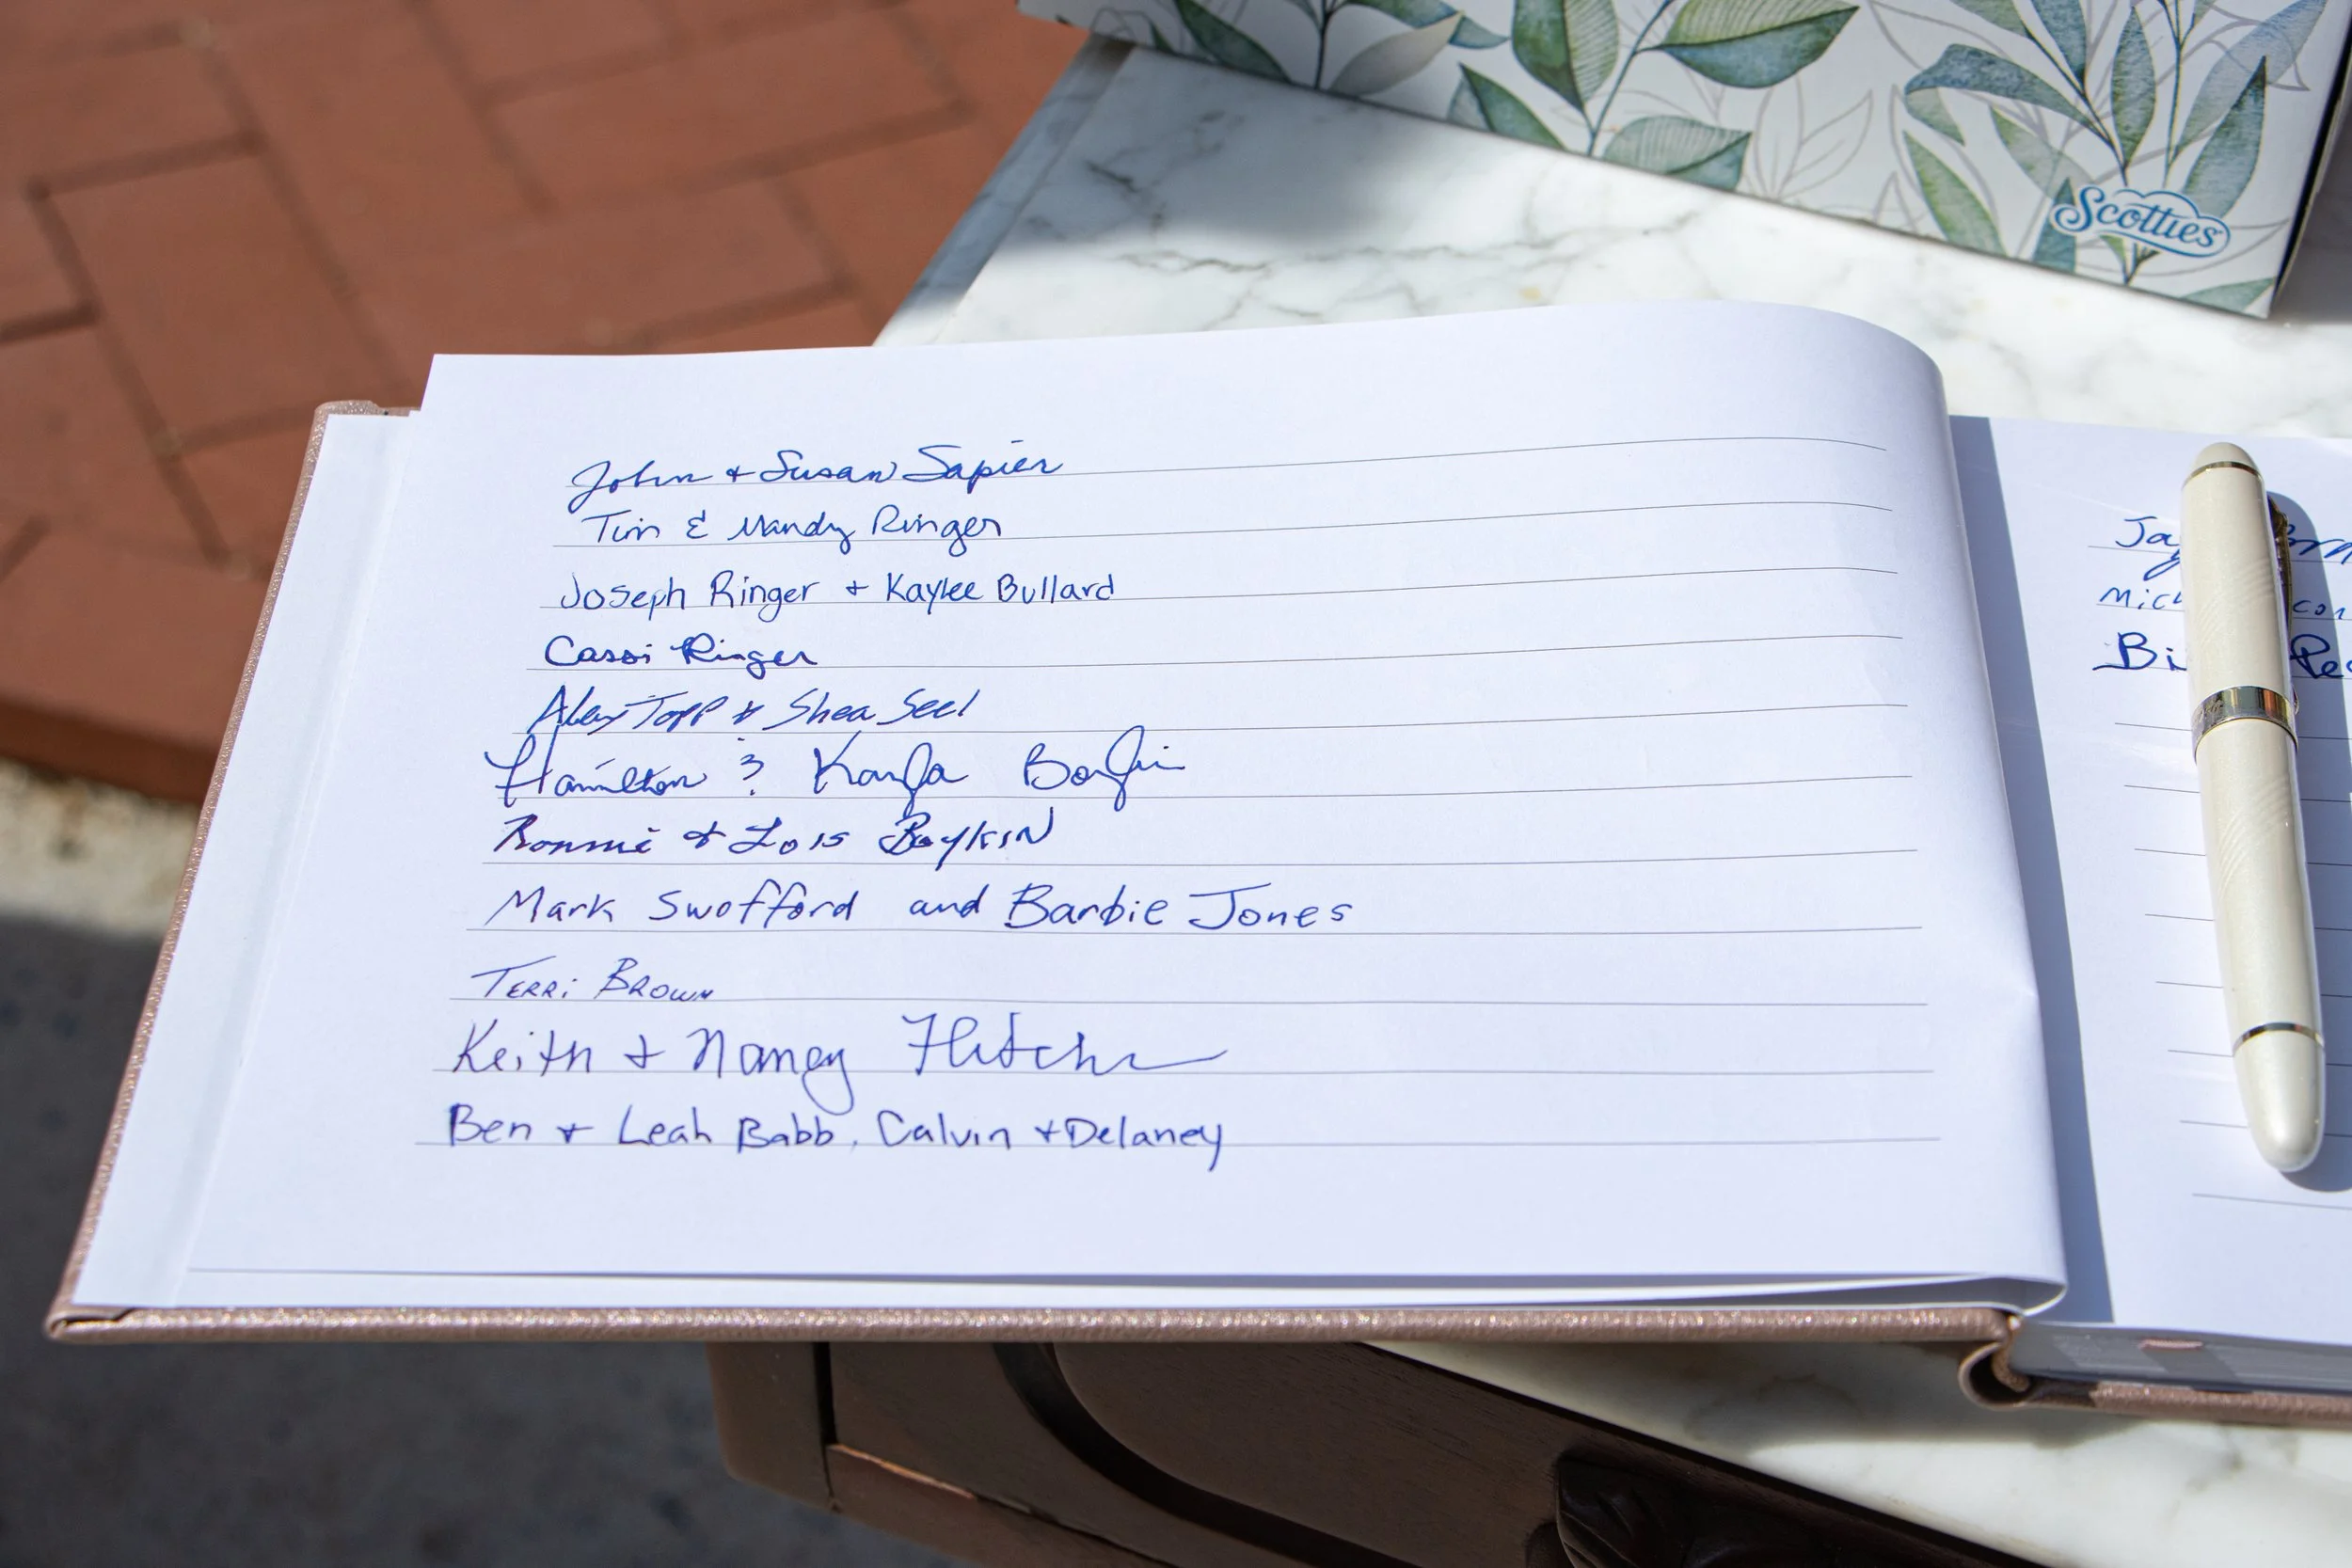 Scotties
John + Susan Sapier
Tim & Mandy Ringer
Joseph Ringer + Kaylee Bullard
Cassi Ringer
Alex Topp & Shea Seel
Hamilton & Kayla
Ronnie + Lois Boykin
Mark Swofford and Barbie Jones
Terri Brown
Keith + Nancy
Ben + Leah Babb, Calvin + Delaney
Ja
Mich
Bi